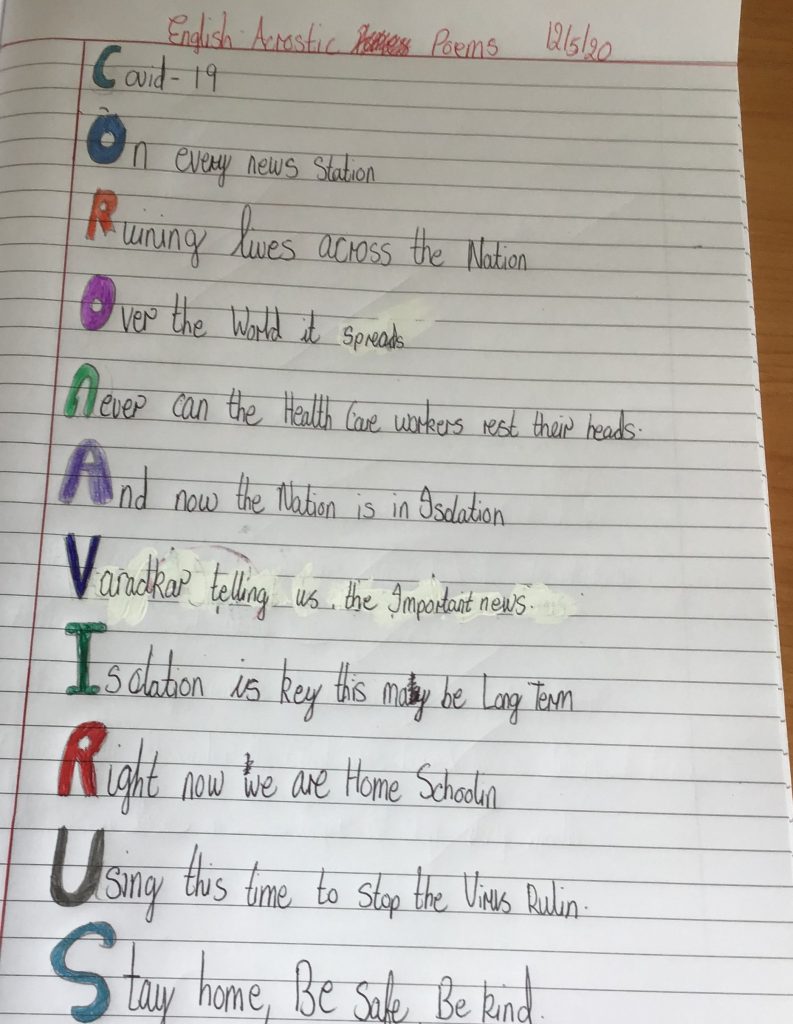 English Acrostic Poems 12/5/20
Covid-19
On every news Station
Ruining lives across the Nation
Over the World it spreads
Never can the Health Care workers rest their heads.
And now the Nation is in Isolation
Varadkar telling us the Important news.
Isolation is key this may be Long Term
Right now we are Home Schoolin
Using this time to Stop the Virus Rulin.
Stay home, Be Safe Be kind.